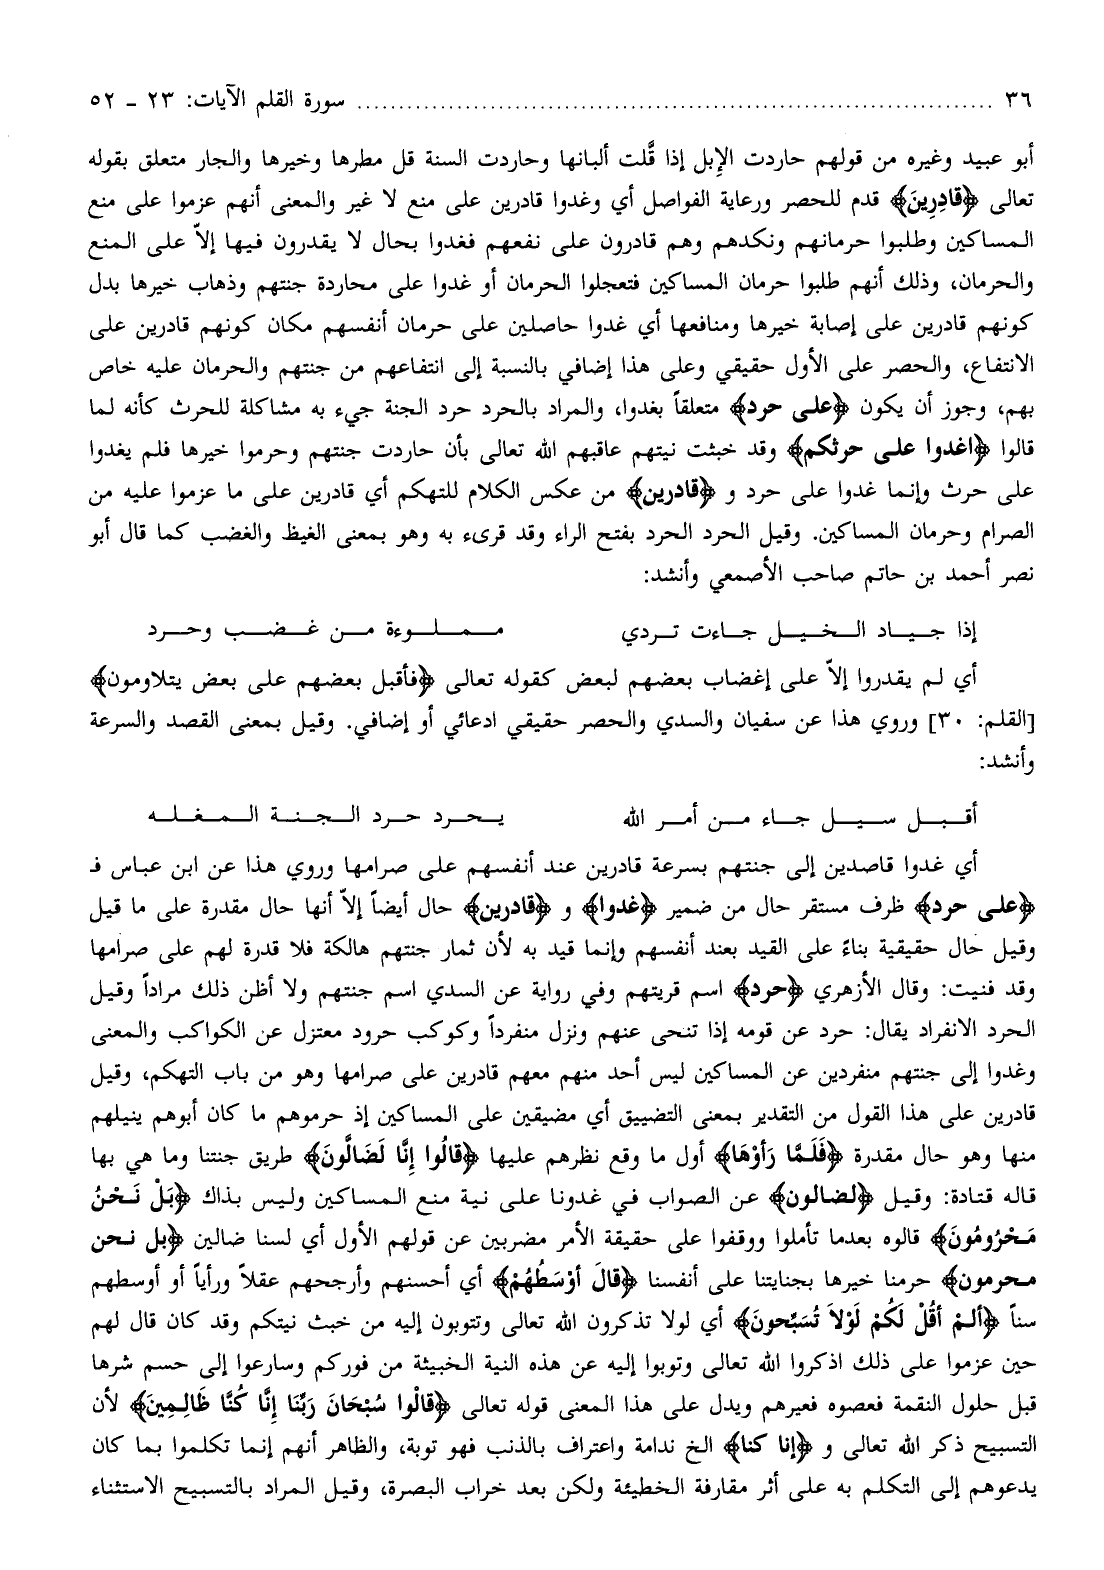 ٣٦ ........................................................................ سورة القلم الآيات: ٢٣ - ٥٢
أبو عبيد وغيره من قولهم حاردت الإبل إذا قَّلت ألبانها وحاردت السنة قل مطرها وخيرها والجار متعلق بقوله
تعالى ﴿قادِرِينَ﴾ قدم للحصر ورعاية الفواصل أي وغدوا قادرين على منع لا غير والمعنى أنهم عزموا على منع
المساكين وطلبوا حرمانهم ونكدهم وهم قادرون على نفعهم فغدوا بحال لا يقدرون فيها إلاّ على المنع
والحرمان، وذلك أنهم طلبوا حرمان المساكين فتعجلوا الحرمان أو غدوا على محاردة جنتهم وذهاب خيرها بدل
كونهم قادرين على إصابة خيرها ومنافعها أي غدوا حاصلين على حرمان أنفسهم مكان كونهم قادرين على
الانتفاع، والحصر على الأول حقيقي وعلى هذا إضافي بالنسبة إلى انتفاعهم من جنتهم والحرمان عليه خاص
بهم، وجوز أن يكون ﴿على حرد﴾ متعلقاً بغدوا، والمراد بالحرد حرد الجنة جيء به مشاكلة للحرث كأنه لما
قالوا ﴿اغدوا على حرثكم﴾ وقد خبثت نيتهم عاقبهم الله تعالى بأن حاردت جنتهم وحرموا خيرها فلم يغدوا
على حرث وإنما غدوا على حرد و ﴿قادرين﴾ من عكس الكلام للتهكم أي قادرين على ما عزموا عليه من
الصرام وحرمان المساكين. وقيل الحرد الحرد بفتح الراء وقد قرىء به وهو بمعنى الغيظ والغضب كما قال أبو
نصر أحمد بن حاتم صاحب الأصمعي وأنشد:
إذا جياد الخيل جاءت تردي مملوءة من غضب وحرد
أي لم يقدروا إلاّ على إغضاب بعضهم لبعض كقوله تعالى ﴿فأقبل بعضهم على بعض يتلاومون﴾
[القلم: ٣٠] وروي هذا عن سفيان والسدي والحصر حقيقي ادعائي أو إضافي. وقيل بمعنى القصد والسرعة
وأنشد:
أقبل سيل جاء من أمر الله يحرد حرد الجنة المغله
أي غدوا قاصدين إلى جنتهم بسرعة قادرين عند أنفسهم على صرامها وروي هذا عن ابن عباس فـ
﴿على حرد﴾ ظرف مستقر حال من ضمير ﴿غدوا﴾ و ﴿قادرين﴾ حال أيضاً إلاّ أنها حال مقدرة على ما قيل
وقيل حال حقيقية بناءً على القيد بعند أنفسهم وإنما قيد به لأن ثمار جنتهم هالكة فلا قدرة لهم على صرامها
وقد فنيت: وقال الأزهري ﴿حرد﴾ اسم قريتهم وفي رواية عن السدي اسم جنتهم ولا أظن ذلك مراداً وقيل
الحرد الانفراد يقال: حرد عن قومه إذا تنحى عنهم ونزل منفرداً وكوكب حرود معتزل عن الكواكب والمعنى
وغدوا إلى جنتهم منفردين عن المساكين ليس أحد منهم معهم قادرين على صرامها وهو من باب التهكم، وقيل
قادرين على هذا القول من التقدير بمعنى التضييق أي مضيقين على المساكين إذ حرموهم ما كان أبوهم ينيلهم
منها وهو حال مقدرة ﴿فَلَمَّا رَأَوْهَا﴾ أول ما وقع نظرهم عليها ﴿قالُوا إِنَّا لَضَالُّونَ﴾ طريق جنتنا وما هي بها
قاله قتادة: وقيل ﴿لضالون﴾ عن الصواب في غدونا على نية منع المساكين وليس بذاك ﴿بَلْ نَحْنُ
مَحْرُومُونَ﴾ قالوه بعدما تأملوا ووقفوا على حقيقة الأمر مضربين عن قولهم الأول أي لسنا ضالين ﴿بل نحن
محرمون﴾ حرمنا خيرها بجنايتنا على أنفسنا ﴿قالَ أَوْسَطُهُمْ﴾ أي أحسنهم وأرجحهم عقلاً ورأياً أو أوسطهم
سناً ﴿أَلَمْ أَقُلْ لَكُمْ لَوْلاَ تُسَبِّحونَ﴾ أي لولا تذكرون الله تعالى وتتوبون إليه من خبث نيتكم وقد كان قال لهم
حين عزموا على ذلك اذكروا الله تعالى وتوبوا إليه عن هذه النية الخبيثة من فوركم وسارعوا إلى حسم شرها
قبل حلول النقمة فعصوه فعيرهم ويدل على هذا المعنى قوله تعالى ﴿قالُوا سُبْحَانَ رَبِّنَا إِنَّا كُنَّا ظَالِمِينَ﴾ لأن
التسبيح ذكر الله تعالى و ﴿إنا كنا﴾ الخ ندامة واعتراف بالذنب فهو توبة، والظاهر أنهم إنما تكلموا بما كان
يدعوهم إلى التكلم به على أثر مقارفة الخطيئة ولكن بعد خراب البصرة، وقيل المراد بالتسبيح الاستثناء